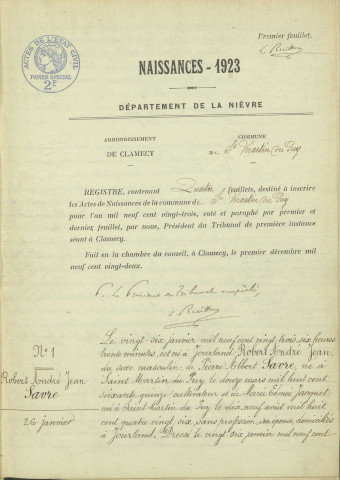 Premier feuillet.
ACTES DE L'ETAT CIVIL
PAPIER SPÉCIAL
2F
NAISSANCES - 1923
DÉPARTEMENT DE LA NIÈVRE
ARRONDISSEMENT
DE CLAMECY
COMMUNE
de St Martin du Puy
REGISTRE, contenant Quatre feuillets, destiné à inscrire
les Actes de Naissances de la commune de St Martin du Puy
pour l'an mil neuf cent vingt-trois, coté et paraphé par premier et
dernier feuillet, par nous, Président du Tribunal de première instance
séant à Clamecy.
Fait en la chambre du conseil, à Clamecy, le premier décembre mil
neuf cent vingt-deux.
P. Le Président du Tribunal empêché,
N° 1
Robert André Jean
Savre
26 janvier
Le vingt-six janvier mil neuf cent vingt trois six heures
trente minutes, est né à Jourland Robert André Jean
du sexe masculin, de Pierre Albert Savre, né à
Saint Martin du Puy le douze mars mil huit cent
soixante quinze, cultivateur et de Marie Edmée Jacquet
née à Saint Martin du Puy le dix neuf août mil huit
cent quatre vingt six, sans profession, son épouse, domiciliés
à Jourland, Dressé le vingt six janvier mil neuf cent